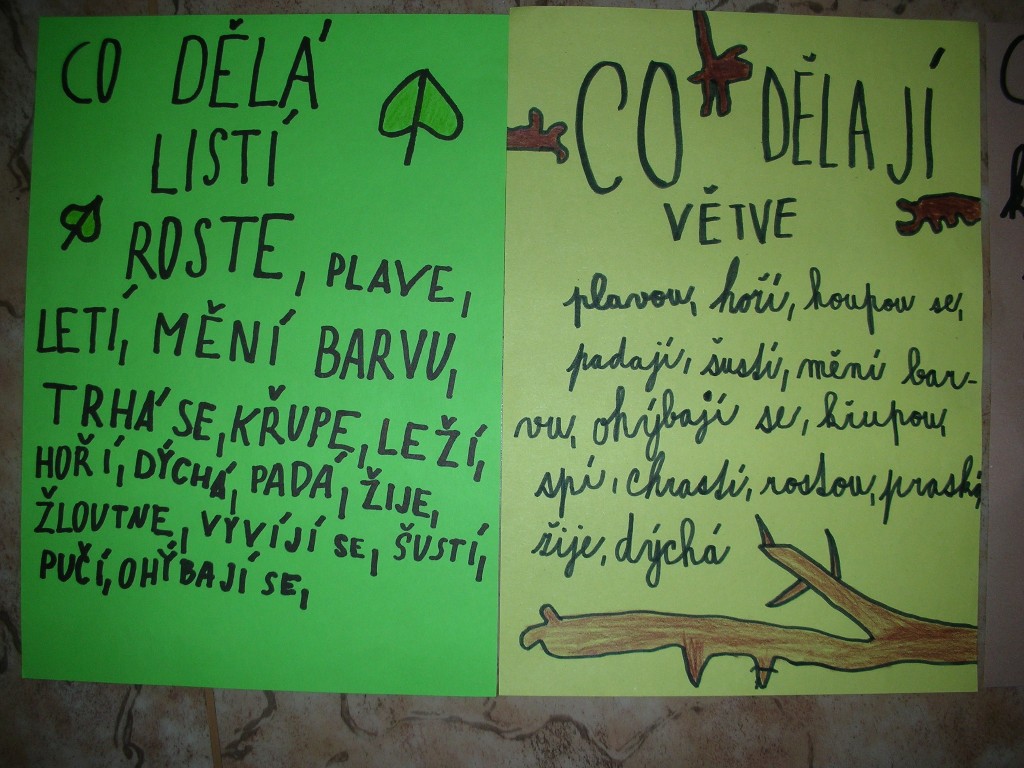 CO DĚLÁ
LISTÍ
ROSTE, PLAVE,
LETÍ, MĚNÍ BARVU,
TRHÁ SE, KŘUPE, LEŽÍ,
HOŘÍ, DÝCHÁ, PADÁ, ŽIJE,
ŽLOUTNE, VYVÍJÍ SE, ŠUSTÍ,
PUČÍ, OHÝBAJÍ SE,
CO DĚLAJÍ
VĚTVE
plavou, hoří, houpou se,
padají, šustí, mění bar-
vu, ohýbají se, křupou,
spí, chrastí, rostou,
žije, dýchá